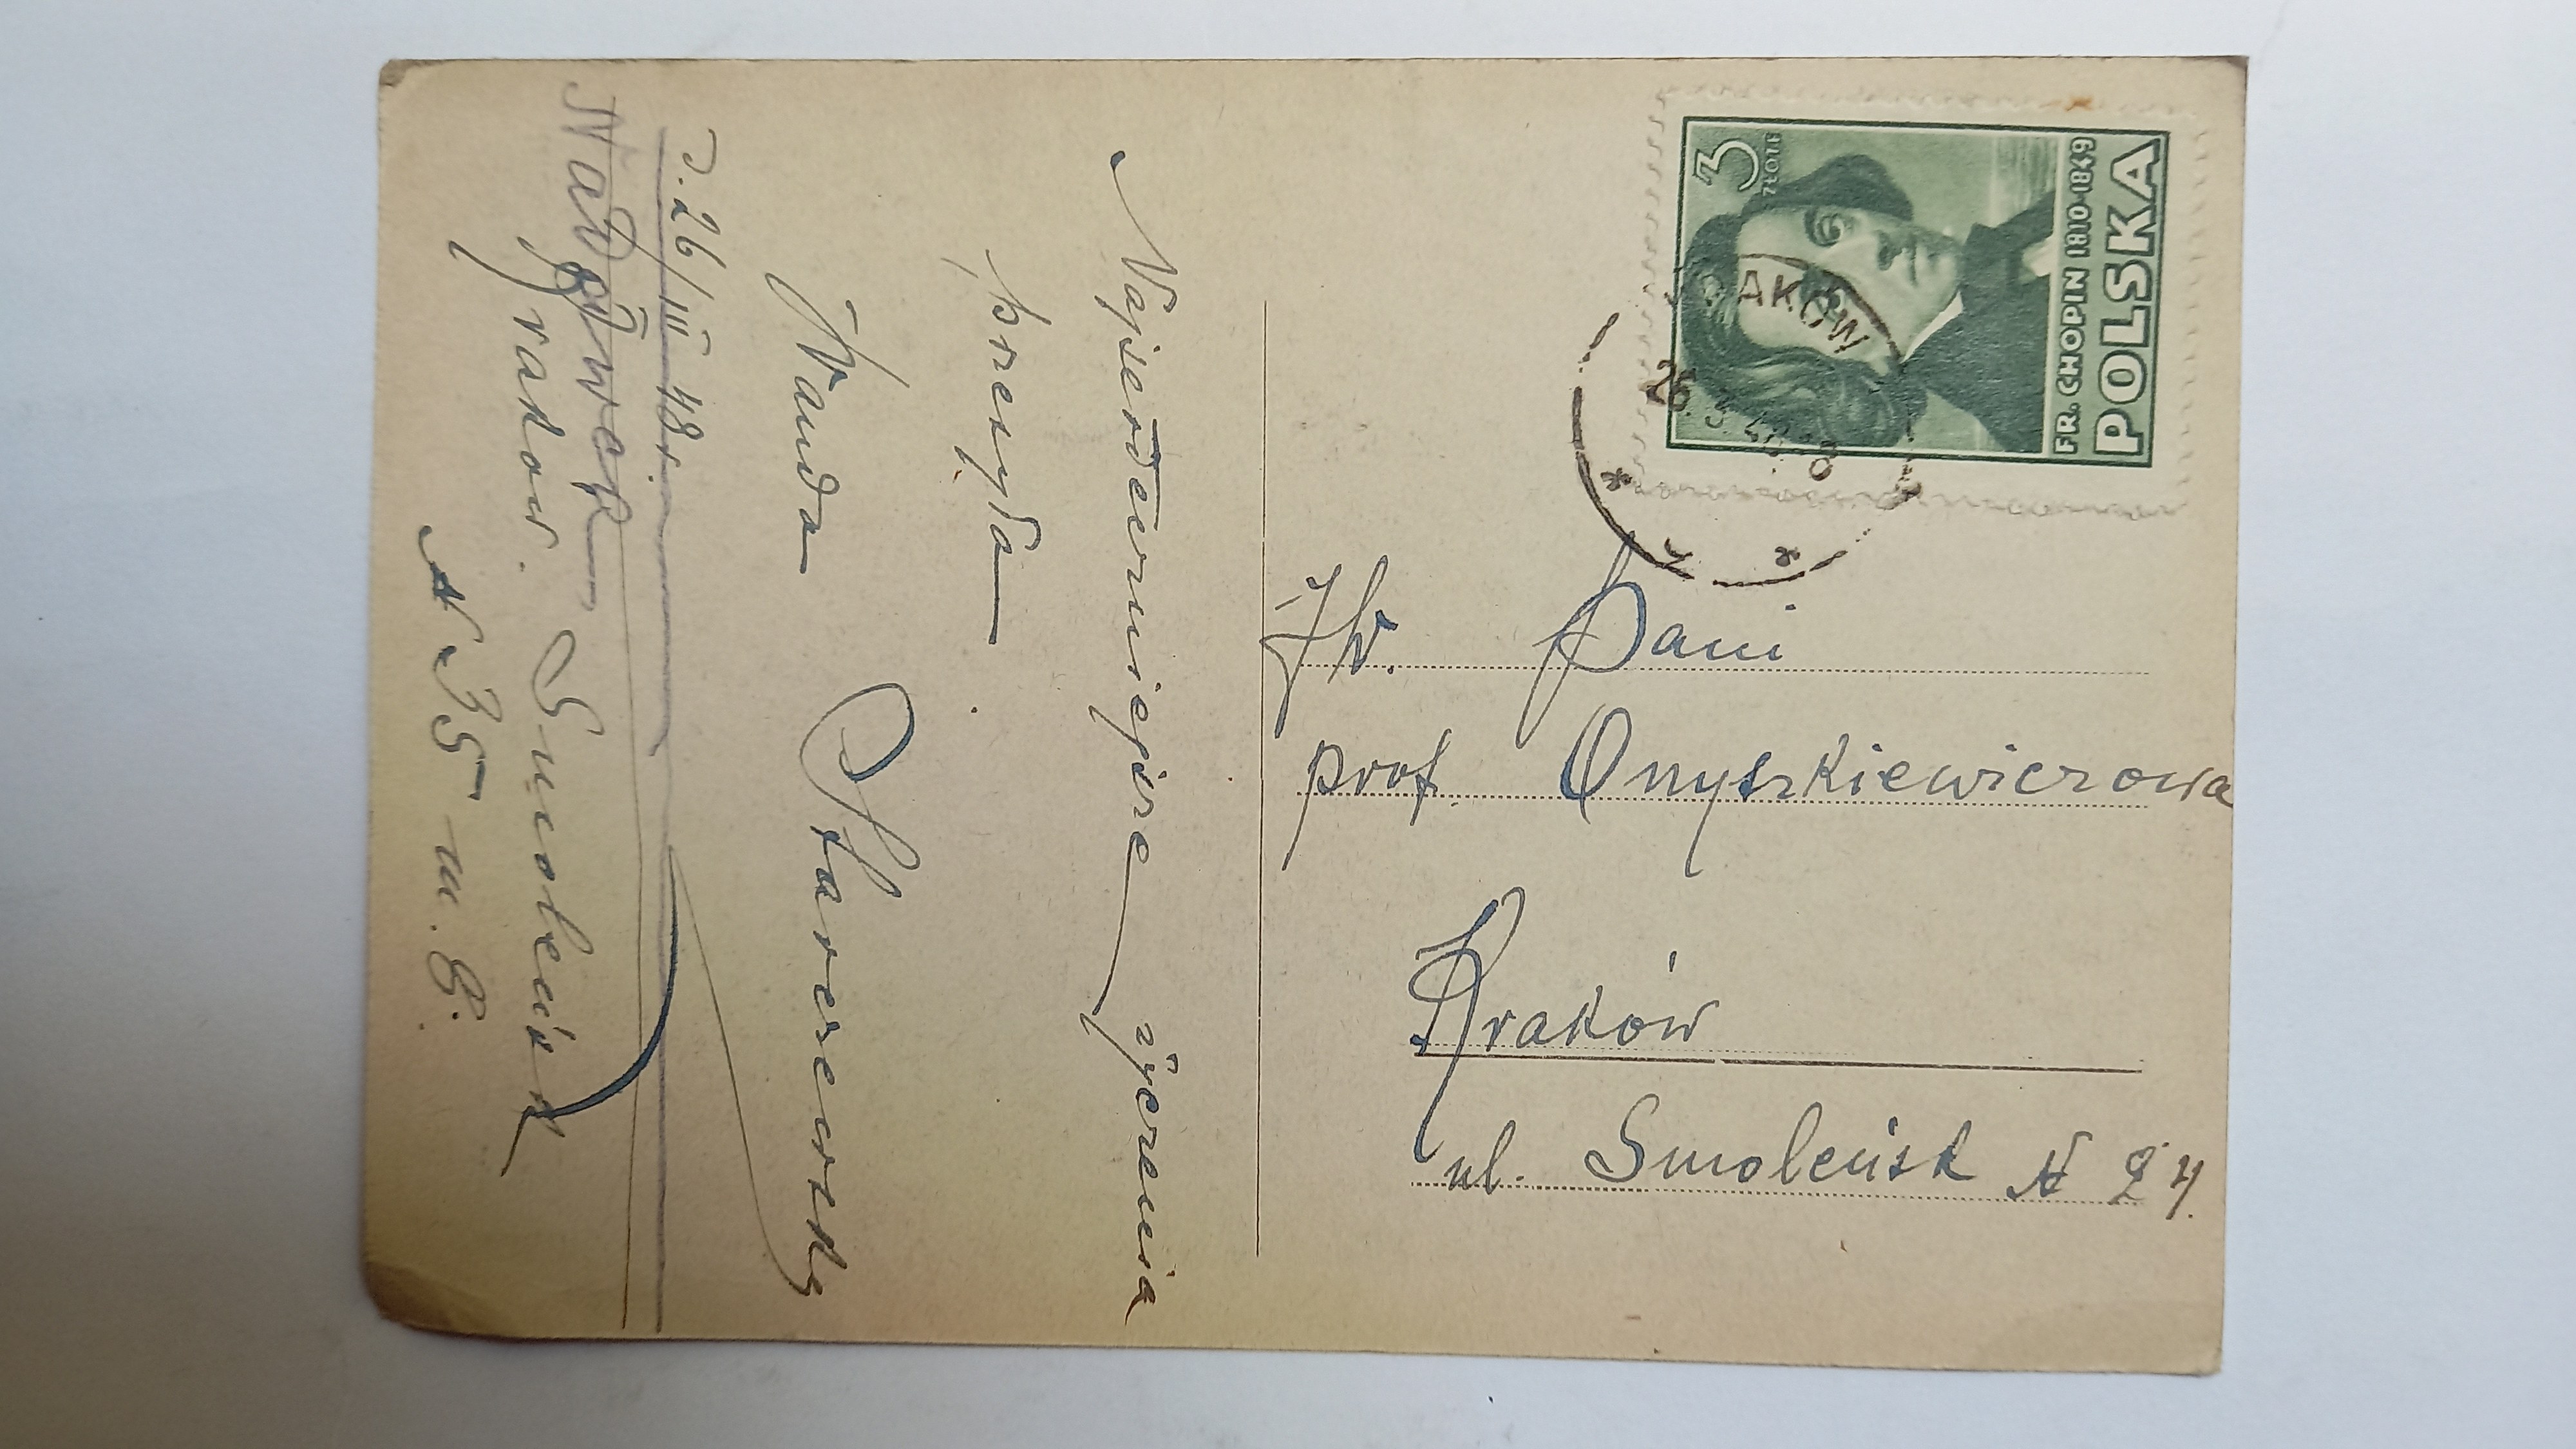 Najserdeczniejsze życzenia
przesyła
Wanda Starczewska
D. 26/III 48 r.
Nadawca
Kraków. Smoleńsk
N 35 m. 8.
3
ZŁOTE
FR. CHOPIN 1810-1849
POLSKA
KRAKÓW
26. 3. 48
JW. Pani
prof. Onyszkiewiczowa
Kraków
ul. Smoleńsk N 24.